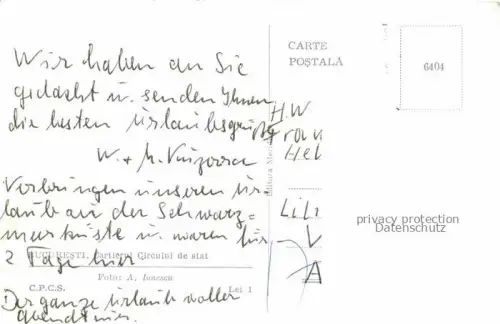 Wir haben an Sie
gedacht u. senden Ihnen
die besten Urlaubsgrüße
W. + M.
Verbringen unseren Ur-
laub an der Schwarz=
meerküste u. waren für
2 Tage hier
BUCUREŞTI. Cartierul Circului de stat
Foto: A. Ionescu
C.P.C.S. Lei 1
Der ganze Urlaub voller
CARTE
POŞTALĂ
6404
H.W
Editura Meridiane
privacy protection
Datenschutz